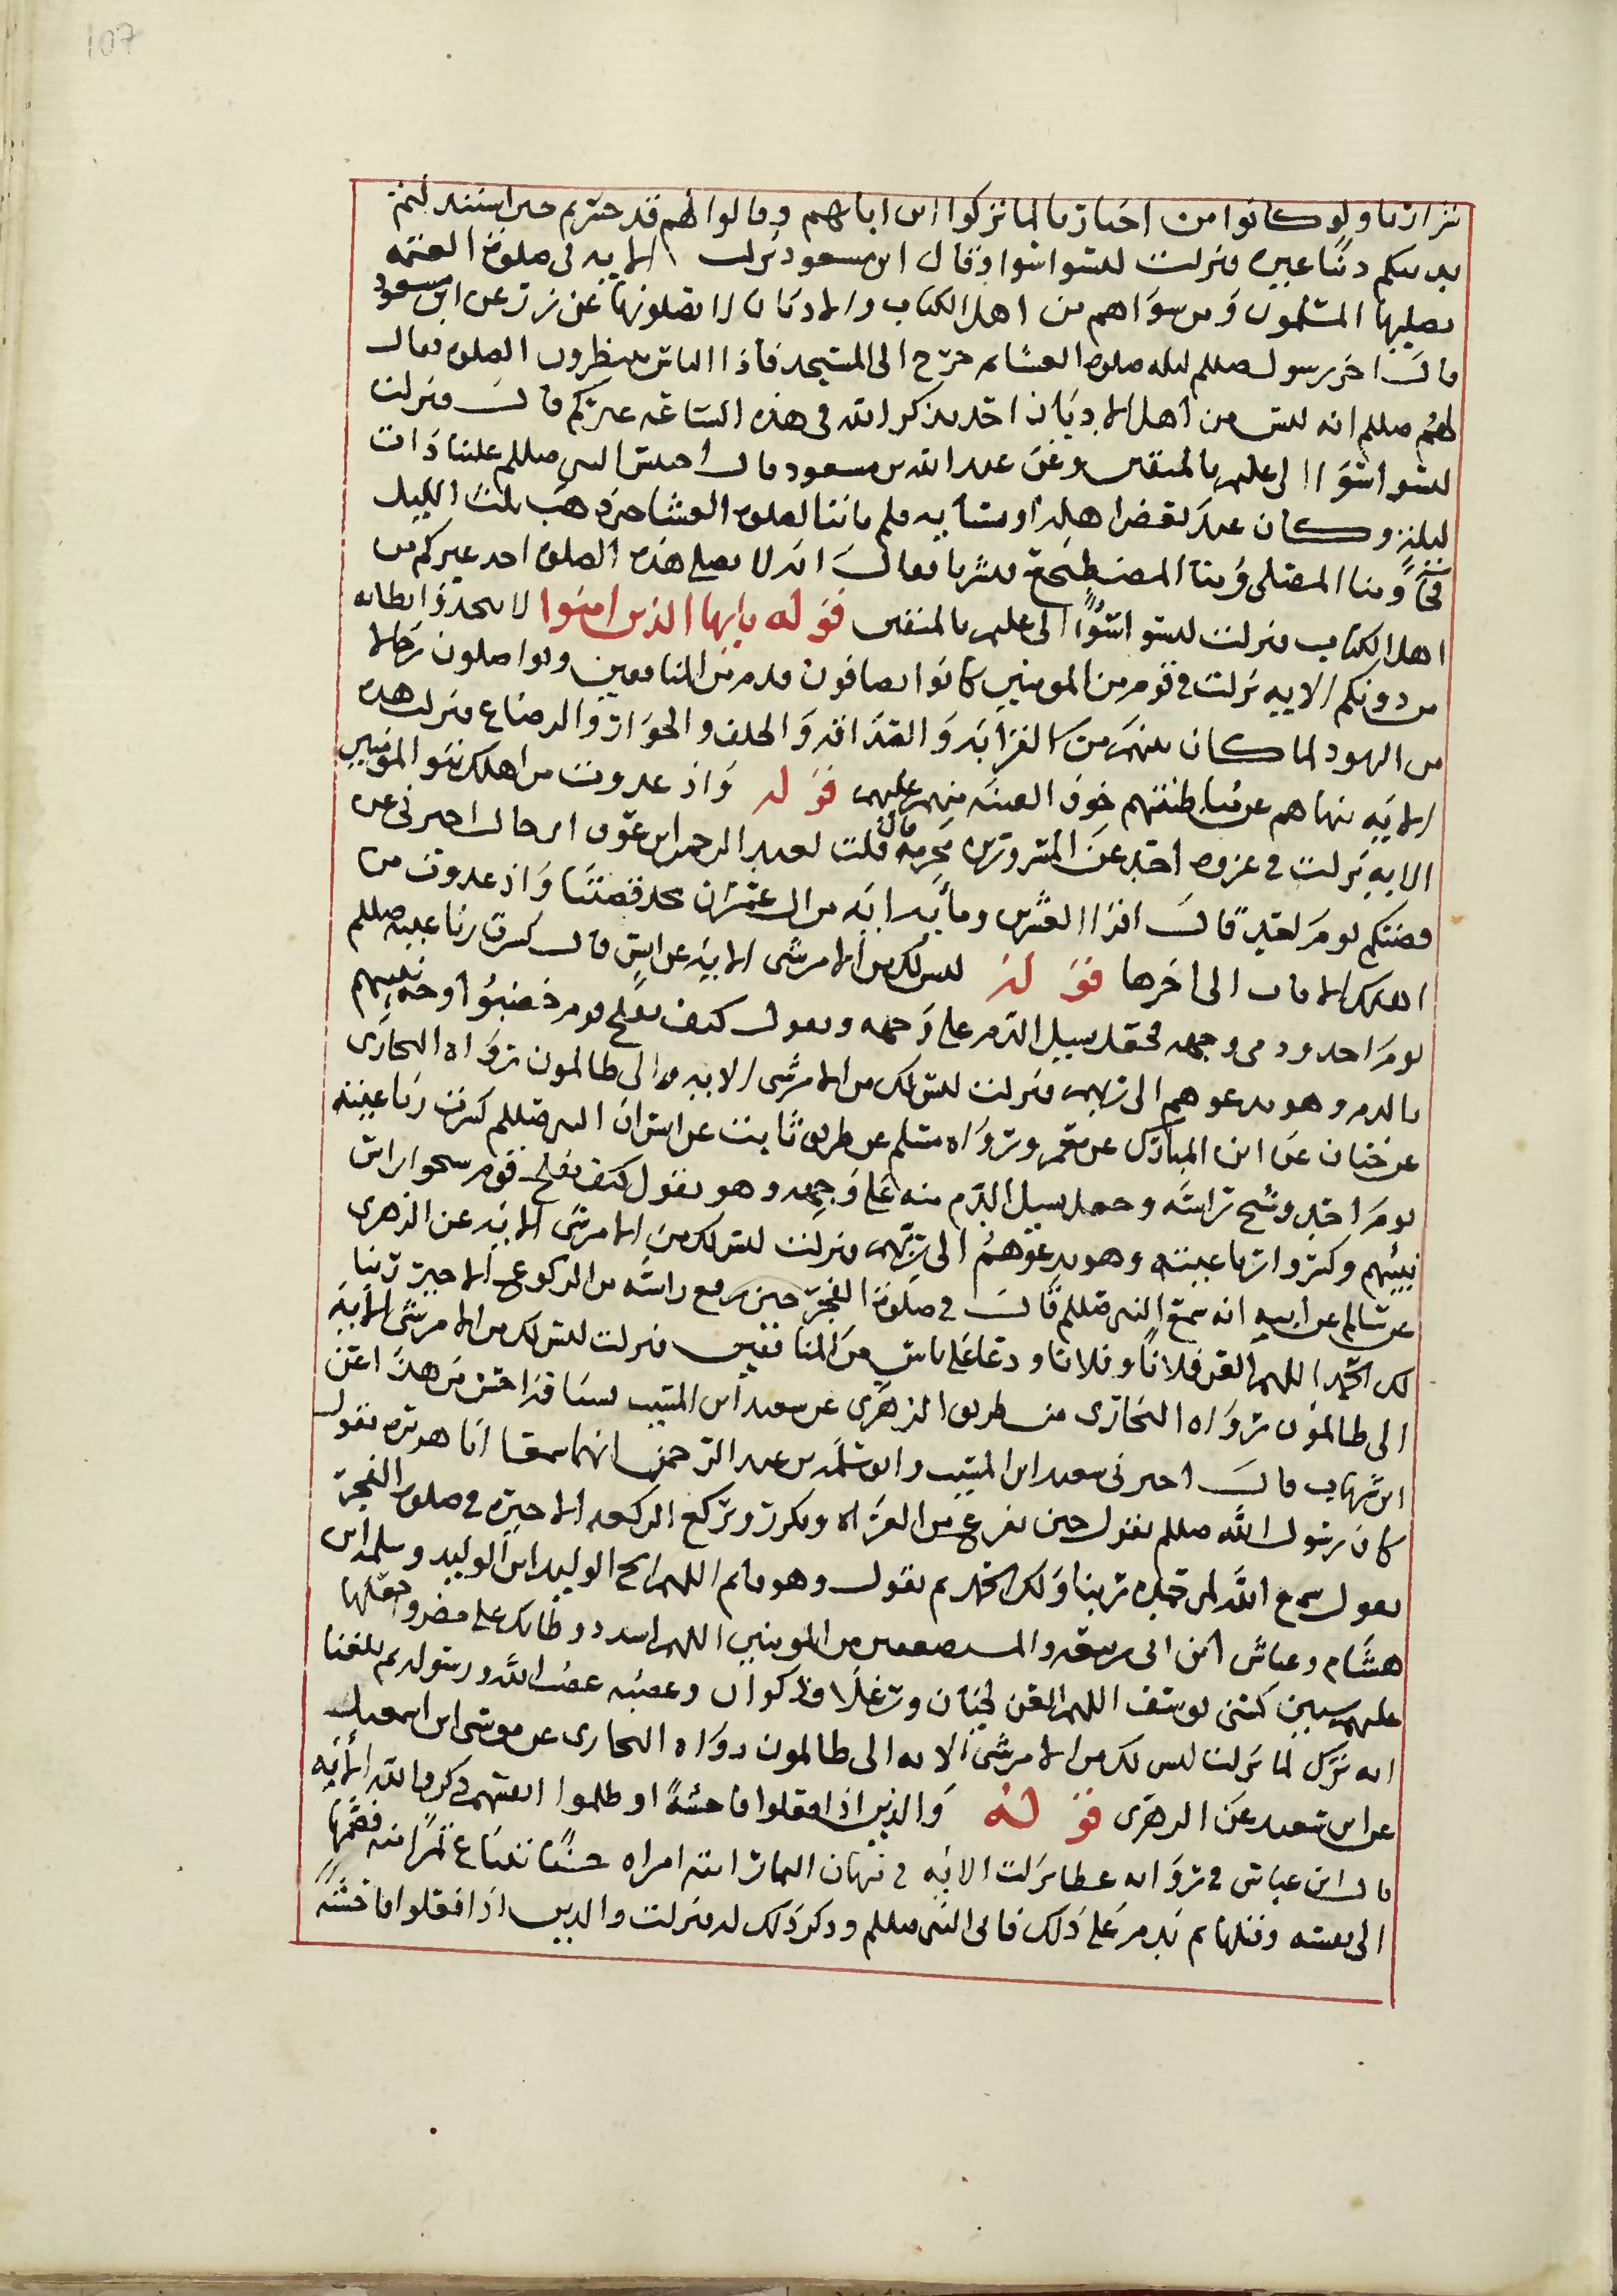 107
شرارنا ولو كانوا من اخيارنا لما تركوا دين ابايهم وقالوا لهم قد خسرتم حين استبدلتم
بدينكم دينا غيره فنزلت ليسوا سوا وقال ابن مسعود نزلت الايه في صلوة العتمه
يصليها المسلمون ومن سواهم من اهل الكتاب والاديان لا يصلونها عن زر عن ابن مسعود
قال اخر رسول صللم ليله صلوة العشا ثم خرج الى المسجد فاذا الناس ينتظرون الصلوة فقال
لهم صللم انه ليس من اهل الاديان احد يذكر الله في هذه الساعه غيركم قال فنزلت
ليسوا سوا الى عليم بالمتقين وعن عبد الله بن مسعود قال احتبس النبي صللم علينا ذات
ليلة وكان عند بعض اهله او نسايه فلم ياتنا لصلوة العشا حتى ذهب ثلث الليل
فجا ومنا المصلى ومنا المضطجع فبشرنا فقال انه لا يصلي هذه الصلوة احد غيركم من
اهل الكتاب فنزلت ليسوا سوا الى عليم بالمتقين قوله يايها الذين امنوا لا تتخذوا بطانه
من دونكم الايه نزلت في قوم من المومنين كانوا يصافون قوم من المنافقين ويواصلون رجالا
من اليهود لما كان بينهم من القرابه والصداقه والحلف والجوار والرضاع فنزلت هذه
الايه ينهاهم عن مباطنتهم خوف الفتنه منهم عليهم قوله واذ غدوت من اهلك تبوى المومنين
الايه نزلت في غزوة احد عن المسور بن مخرمه قال قلت لعبد الرحمن ابن عوف اي خال اخبرني عن
قصتكم يوم احد قال اقرا العشرين ومايه ايه من ال عمران تجد قصتنا واذ غدوت من
اهلك الايات الى اخرها قوله ليس لك من الامر شي الايه عن انس قال كسرت رباعيته صللم
يوم احد ودمي وجهه فجعل يسيل الدم على وجهه ويقول كيف يفلح قوم خضبوا وجه نبيهم
بالدم وهو يدعوهم الى ربهم فنزلت ليس لك من الامر شي الايه والى ظالمون رواه البخاري
عن حبان عن ابن المبارك عن معمر ورواه مسلم عن طريق ثابت عن انس ان النبي صللم كسرت رباعيته
يوم احد وشج راسه وجعل يسيل الدم منه على وجهه وهو يقول كيف يفلح قوم شجوا راس
نبيهم وكسروا رباعيته وهو يدعوهم الى ربهم فنزلت ليس لك من الامر شي الايه عن الزهري
عن سالم عن ابيه انه سمع النبي صللم قال في صلوة الفجر حين رفع راسه من الركوع الاخير ربنا
لك الحمد اللهم العن فلانا وفلانا ودعا على ناس من المنافقين فنزلت ليس لك من الامر شي الايه
الى ظالمون رواه البخاري من طريق الزهري عن سعيد ابن المسيب بسياق احسن من هذا عن
ابن شهاب قال اخبرني سعيد ابن المسيب وابو سلمه بن عبد الرحمن انهما سمعا ابا هريره يقول
كان رسول الله صللم يقول حين يفرغ من القراه ويكبر ويركع الركعه الاخيره في صلوة الفجر
يقول سمع الله لمن حمده ربنا ولك الحمد ثم يقول وهو قايم اللهم انج الوليد ابن الوليد وسلمه ابن
هشام وعياش ابن ابي ربيعه والمستضعفين من المومنين اللهم اشدد وطاتك على مضر واجعلها
عليهم سنين كسني يوسف اللهم العن لحيان ورعلا وذكوان وعصيه عصت الله ورسوله ثم بلغنا
انه ترك لما نزلت ليس لك من الامر شي الايه الى ظالمون رواه البخاري عن موسى ابن اسمعيل
عن ابن سعد عن الزهري قوله والذين اذا فعلوا فاحشة او ظلموا انفسهم ذكروا الله الايه
قال ابن عباس في روايه عطا نزلت الايه في نبهان التمار اتته امراه حسنا تبتاع تمرا منه فضمها
الى نفسه وقبلها ثم ندم على ذلك فاتى النبي صللم وذكر ذلك له فنزلت والذين اذا فعلوا فاحشه